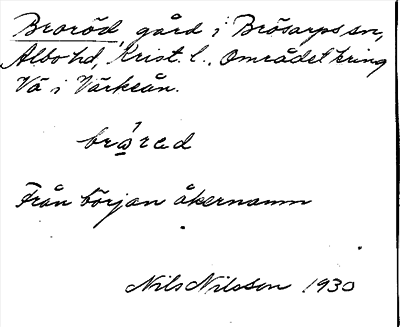 Broröd, gård i Brösarps sn,
Albo hd, Krist. l., Området kring
Vä i Värkeån.
bråræd
Från början åkernamn
Nils Nilsson 1930